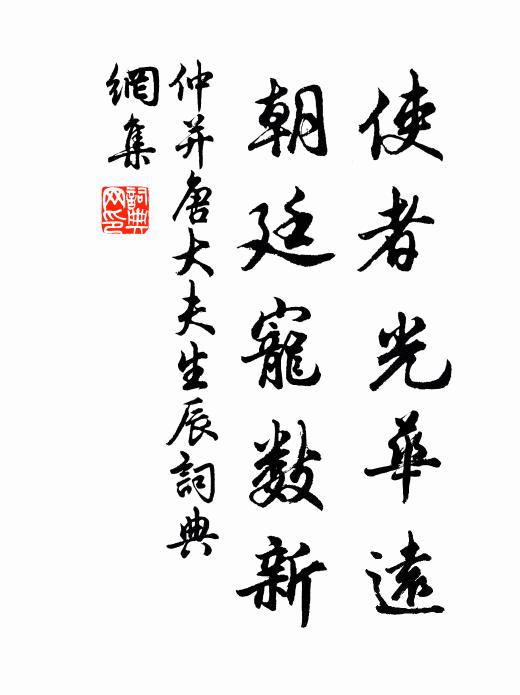 使者光華遠
朝廷寵數新
仲并唐大夫生辰詞典
網集
詞典
网印